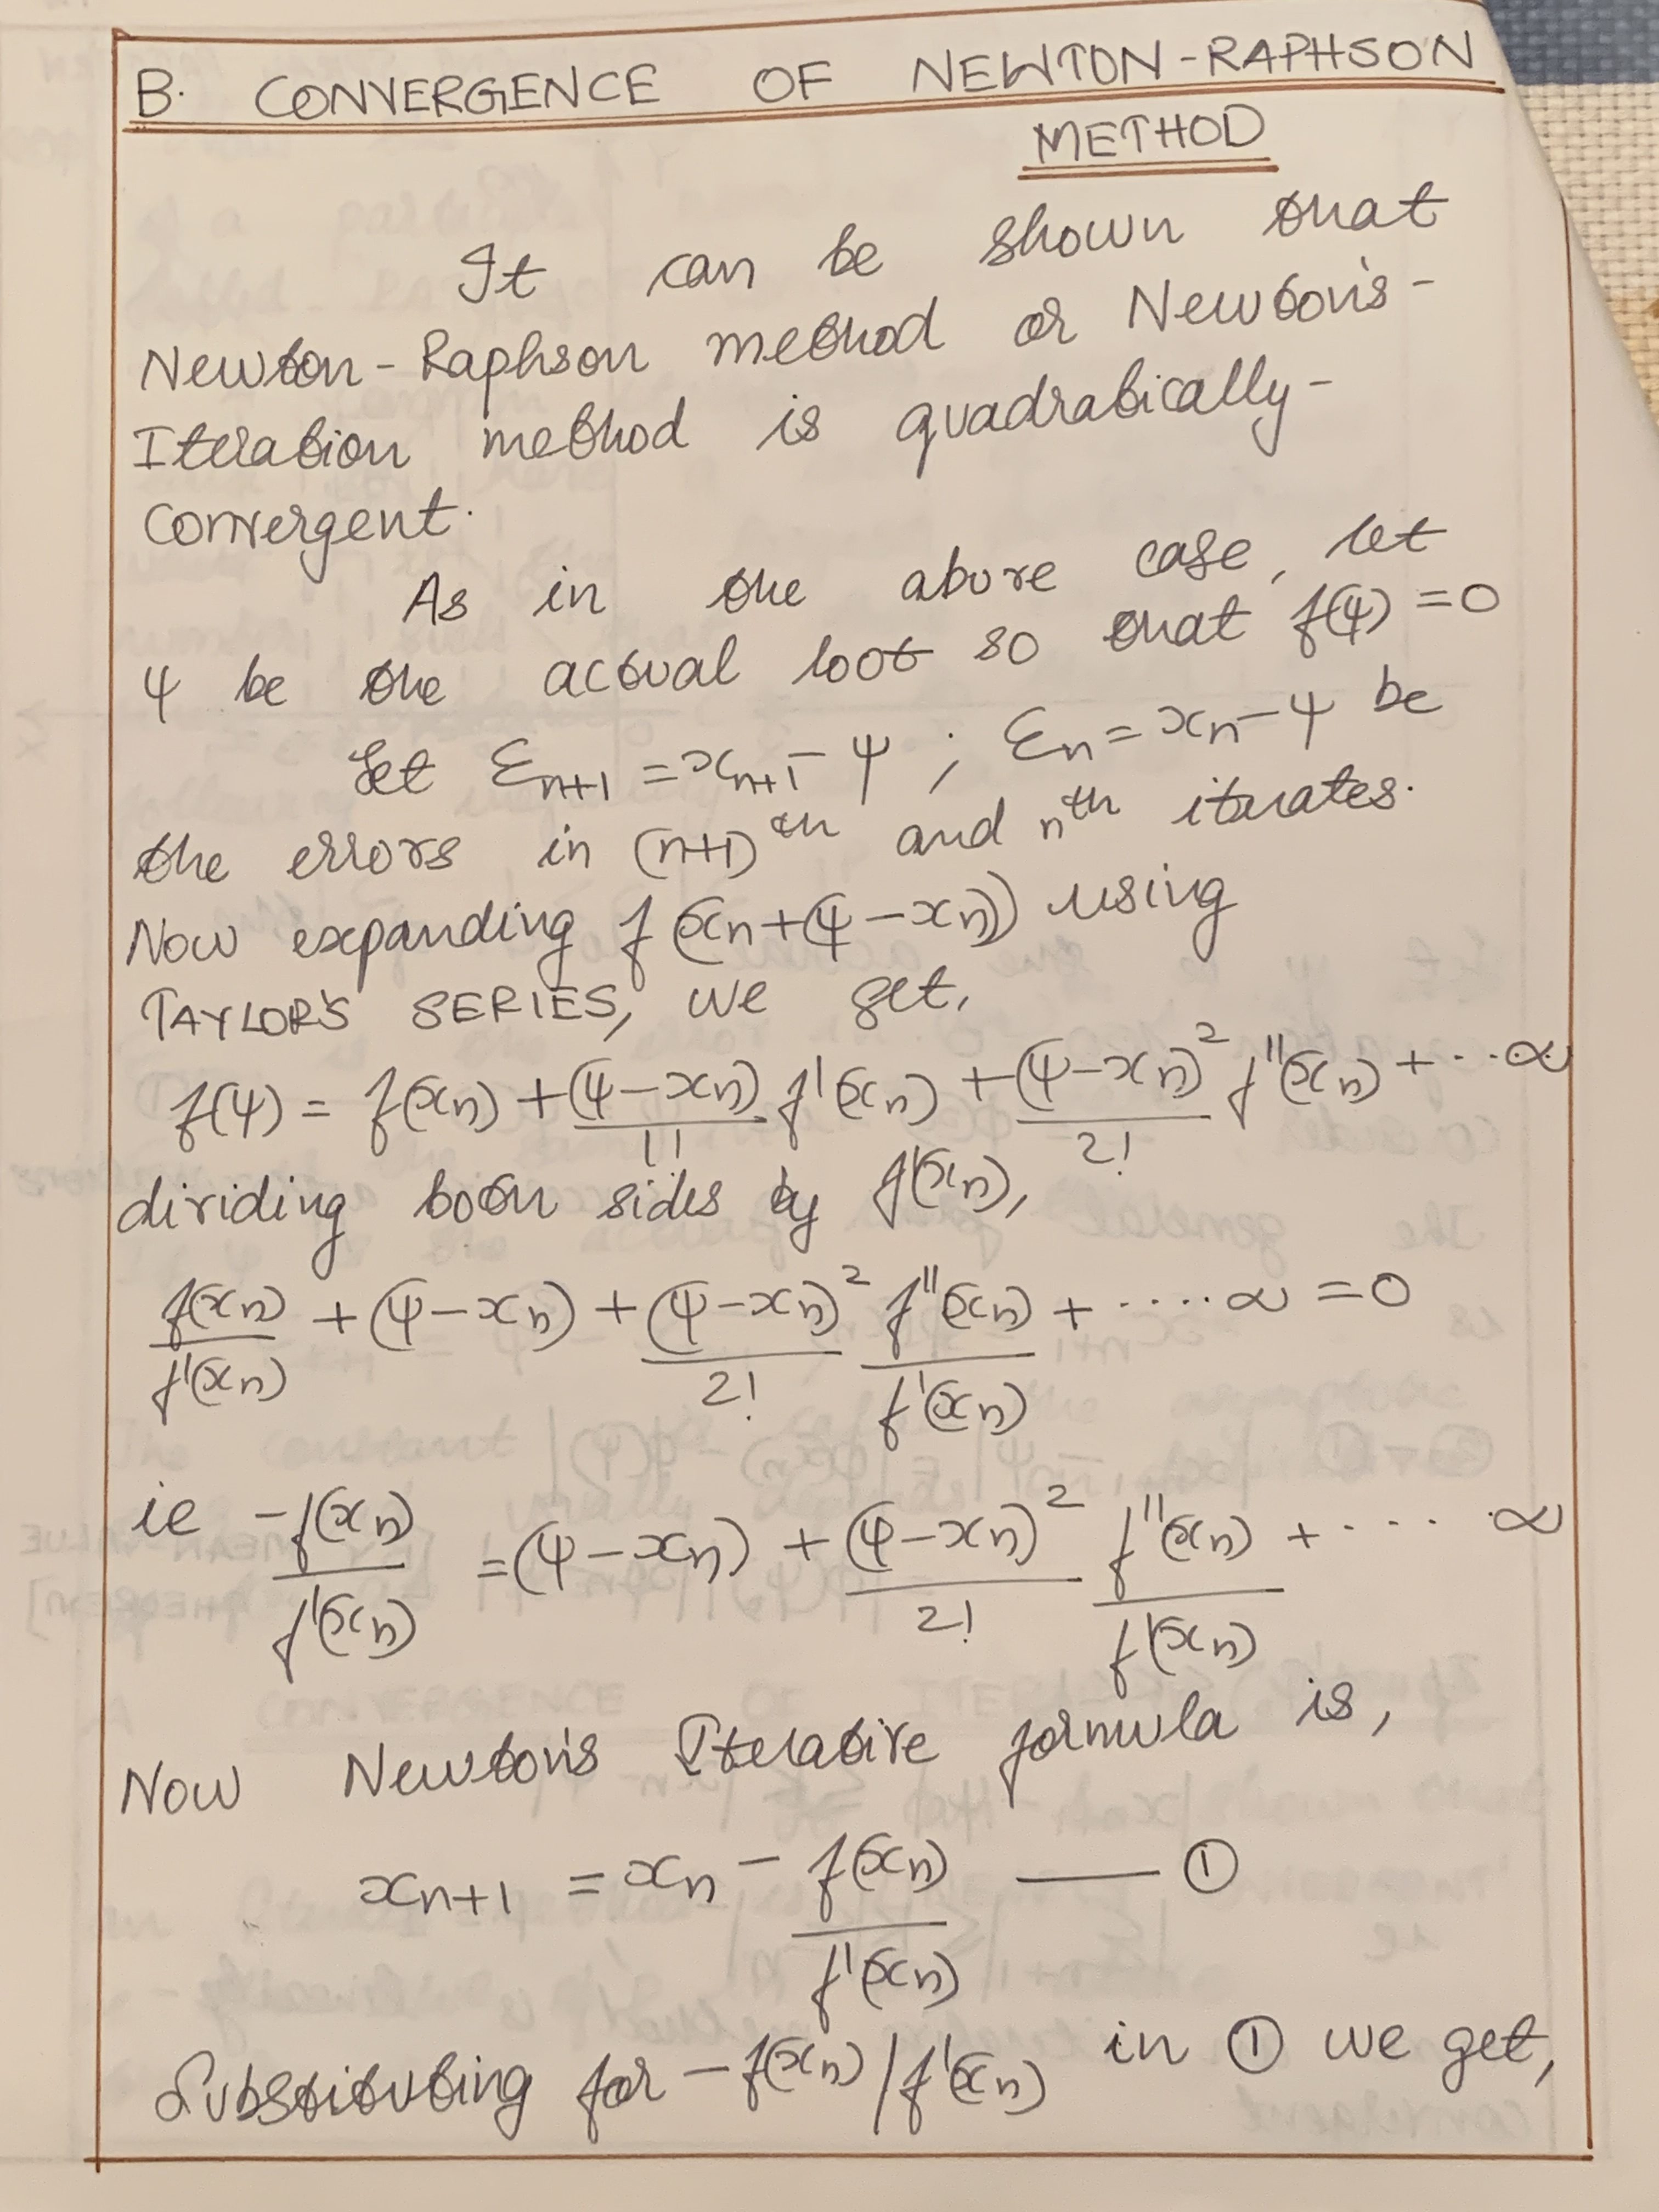 B. CONVERGENCE OF NEWTON-RAPHSON
METHOD
It can be shown that
Newton-Raphson method or Newton's-
Iteration method is quadratically-
convergent.
As in the above case, let
ψ be the actual root so that f(ψ) = 0
Let Ɛn+1 = xn+1 - ψ ; Ɛn = xn - ψ be
the errors in (n+1)th and nth iterates.
Now expanding f(xn+(ψ-xn)) using
TAYLOR'S SERIES, we get,
f(ψ) = f(xn) + (ψ-xn)/1! f'(xn) + (ψ-xn)²/2! f''(xn) + ... ∞
dividing both sides by f'(xn),
f(xn)/f'(xn) + (ψ-xn) + (ψ-xn)²/2! f''(xn)/f'(xn) + ..... ∞ = 0
ie -f(xn)/f'(xn) = (ψ-xn) + (ψ-xn)²/2! f''(xn)/f'(xn) + .... ∞
Now Newton's Iterative formula is,
xn+1 = xn - f(xn)/f'(xn) — ①
Substituting for -f(xn)/f'(xn) in ① we get,